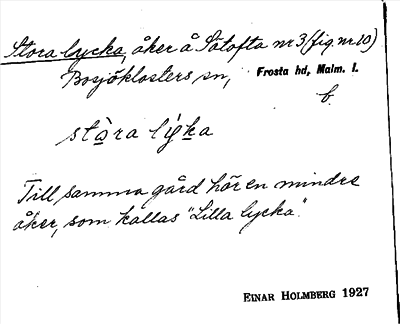 Stora lycka, åker å Sätofta nr 3 (fig. nr 10)
Bosjöklosters sn, Frosta hd, Malm. l.
b.
stòra lýka
Till samma gård hör en mindre
åker, som kallas "Lilla lycka".
EINAR HOLMBERG 1927